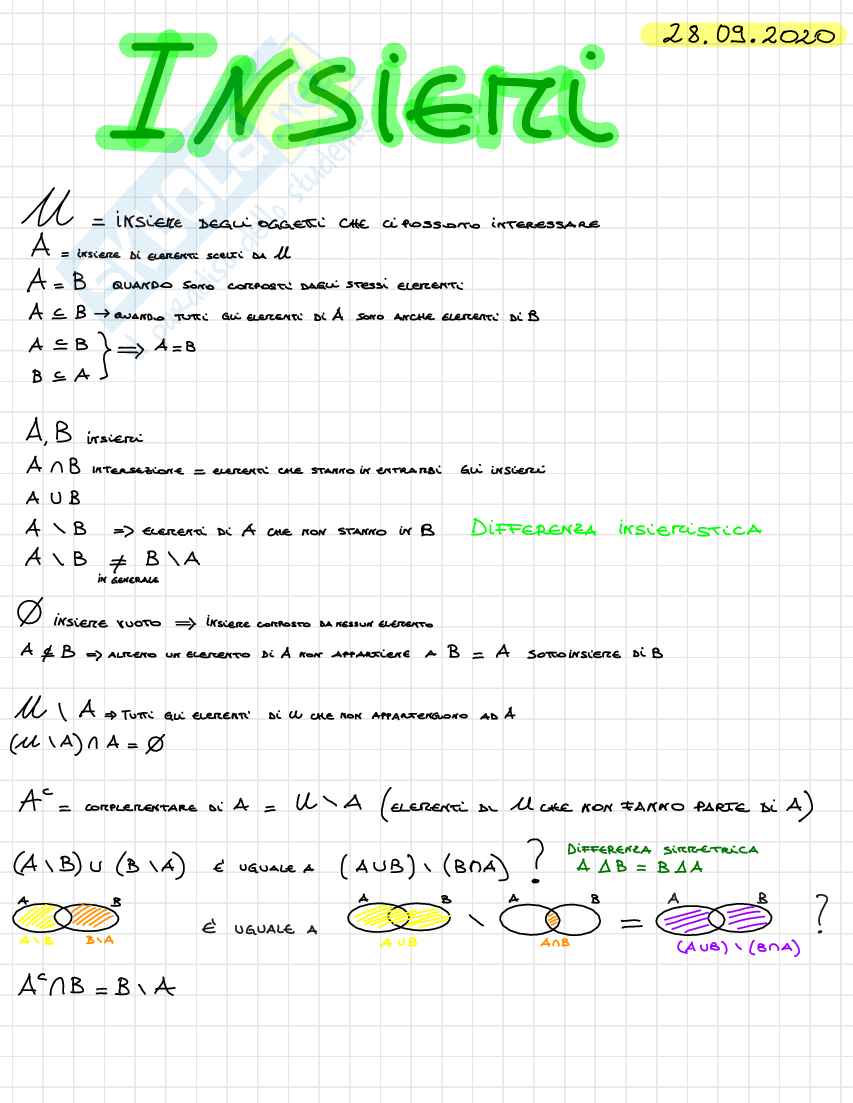 28.09.2020
INSIEMI
U = INSIEME DEGLI OGGETTI CHE CI POSSONO INTERESSARE
A = INSIEME DI ELEMENTI SCELTI DA U
A = B QUANDO SONO COMPOSTI DAGLI STESSI ELEMENTI
A ⊆ B → QUANDO TUTTI GLI ELEMENTI DI A SONO ANCHE ELEMENTI DI B
A ⊆ B } ⟹ A = B
B ⊆ A
A, B INSIEMI
A ∩ B INTERSEZIONE = ELEMENTI CHE STANNO IN ENTRAMBI GLI INSIEMI
A ∪ B
A \ B ⟹ ELEMENTI DI A CHE NON STANNO IN B DIFFERENZA INSIEMISTICA
A \ B ≠ B \ A
IN GENERALE
∅ INSIEME VUOTO ⟹ INSIEME COMPOSTO DA NESSUN ELEMENTO
A ⊄ B ⟹ ALMENO UN ELEMENTO DI A NON APPARTIENE A B = A SOTTOINSIEME DI B
U \ A ⟹ TUTTI GLI ELEMENTI DI U CHE NON APPARTENGONO AD A
(U \ A) ∩ A = ∅
Aᶜ = COMPLEMENTARE DI A = U \ A (ELEMENTI DI U CHE NON FANNO PARTE DI A)
DIFFERENZA SIMMETRICA
(A \ B) ∪ (B \ A) E' UGUALE A (A ∪ B) \ (B ∩ A) ? A Δ B = B Δ A
A B A B A B A B
E' UGUALE A \ = ?
A \ B B \ A A ∪ B A ∩ B (A ∪ B) \ (B ∩ A)
Aᶜ ∩ B = B \ A